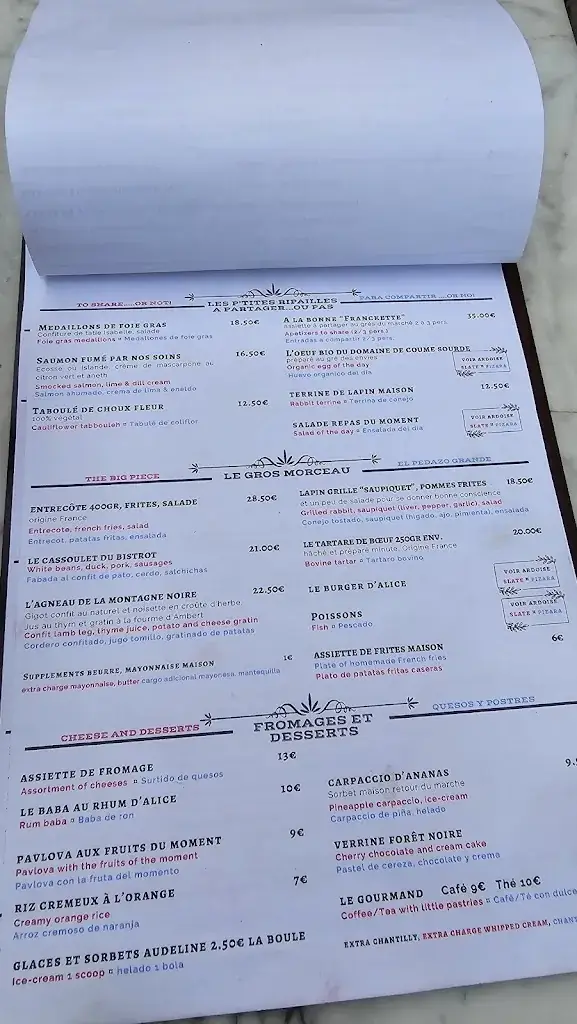 TO SHARE....OR NOT!
LES P'TITES RIPAILLES
A PARTAGER...OU PAS
PARA COMPARTIR ...OR NO!
MEDAILLONS DE FOIE GRAS 18.50€
Confiture de tatie Isabelle, salade
Foie gras medallions ¤ Medallones de foie gras
SAUMON FUMÉ PAR NOS SOINS 16.50€
Ecosse ou Islande, crème de mascarpone au
citron vert et aneth
Smocked salmon, lime & dill cream
Salmon ahumado, crema de lima & eneldo
TABOULÉ DE CHOUX FLEUR 12.50€
100% végétal
Cauliflower tabbouleh ¤ Tabulé de coliflor
A LA BONNE "FRANCKETTE" 35.00€
assiette à partager au grès du marché 2 à 3 pers.
Apetizers to share (2/3 pers.)
Entradas a compartir 2/3 pers.
L'OEUF BIO DU DOMAINE DE COUME SOURDE
préparé au gré des envies
Organic egg of the day
Huevo organico del dia
VOIR ARDOISE
SLATE ¤ PIZARA
TERRINE DE LAPIN MAISON 12.50€
Rabbit terrine ¤ Terrina de conejo
SALADE REPAS DU MOMENT
Salad of the day ¤ Ensalada del dia
VOIR ARDOISE
SLATE ¤ PIZARA
THE BIG PIECE
LE GROS MORCEAU
EL PEDAZO GRANDE
ENTRECÔTE 400GR, FRITES, SALADE 28.50€
origine France
Entrecote, french fries, salad
Entrecot, patatas fritas, ensalada
LE CASSOULET DU BISTROT 21.00€
White beans, duck, pork, sausages
Fabada al confit de pato, cerdo, salchichas
L'AGNEAU DE LA MONTAGNE NOIRE 22.50€
Gigot confit au naturel et noisette en croûte d'herbe
Jus au thym et gratin à la fourme d'Ambert
Confit lamb leg, thyme juice, potato and cheese gratin
Cordero confitado, jugo tomillo, gratinado de patatas
SUPPLEMENTS BEURRE, MAYONNAISE MAISON 1€
extra charge mayonnaise, butter cargo adicional mayonesa, mantequilla
LAPIN GRILLE "SAUPIQUET", POMMES FRITES 18.50€
et un peu de salade pour se donner bonne conscience
Grilled rabbit, saupiquet (liver, pepper, garlic), salad
Conejo tostado, saupiquet (higado, ajo, pimienta), ensalada
LE TARTARE DE BŒUF 250GR ENV. 20.00€
hâché et préparé minute, Origine France
Bovine tartar ¤ Tartaro bovino
LE BURGER D'ALICE
VOIR ARDOISE
SLATE ¤ PIZARA
POISSONS
Fish ¤ Pescado
VOIR ARDOISE
SLATE ¤ PIZARA
ASSIETTE DE FRITES MAISON 6€
Plate of homemade French fries
Plato de patatas fritas caseras
CHEESE AND DESSERTS
FROMAGES ET
DESSERTS
QUESOS Y POSTRES
ASSIETTE DE FROMAGE 13€
Assortment of cheeses ¤ Surtido de quesos
LE BABA AU RHUM D'ALICE 10€
Rum baba ¤ Baba de ron
PAVLOVA AUX FRUITS DU MOMENT 9€
Pavlova with the fruits of the moment
Pavlova con la fruta del momento
RIZ CREMEUX À L'ORANGE 7€
Creamy orange rice
Arroz cremoso de naranja
GLACES ET SORBETS AUDELINE 2.50€ LA BOULE
Ice-cream 1 scoop ¤ helado 1 bola
CARPACCIO D'ANANAS 9.
Sorbet maison retour du marché
Pineapple carpaccio, ice-cream
Carpaccio de piña, helado
VERRINE FORÊT NOIRE
Cherry chocolate and cream cake
Pastel de cereza, chocolate y crema
LE GOURMAND Café 9€ Thé 10€
Coffee/Tea with little pastries ¤ Café/Té con dulce
EXTRA CHANTILLY, EXTRA CHARGE WHIPPED CREAM, CHAN